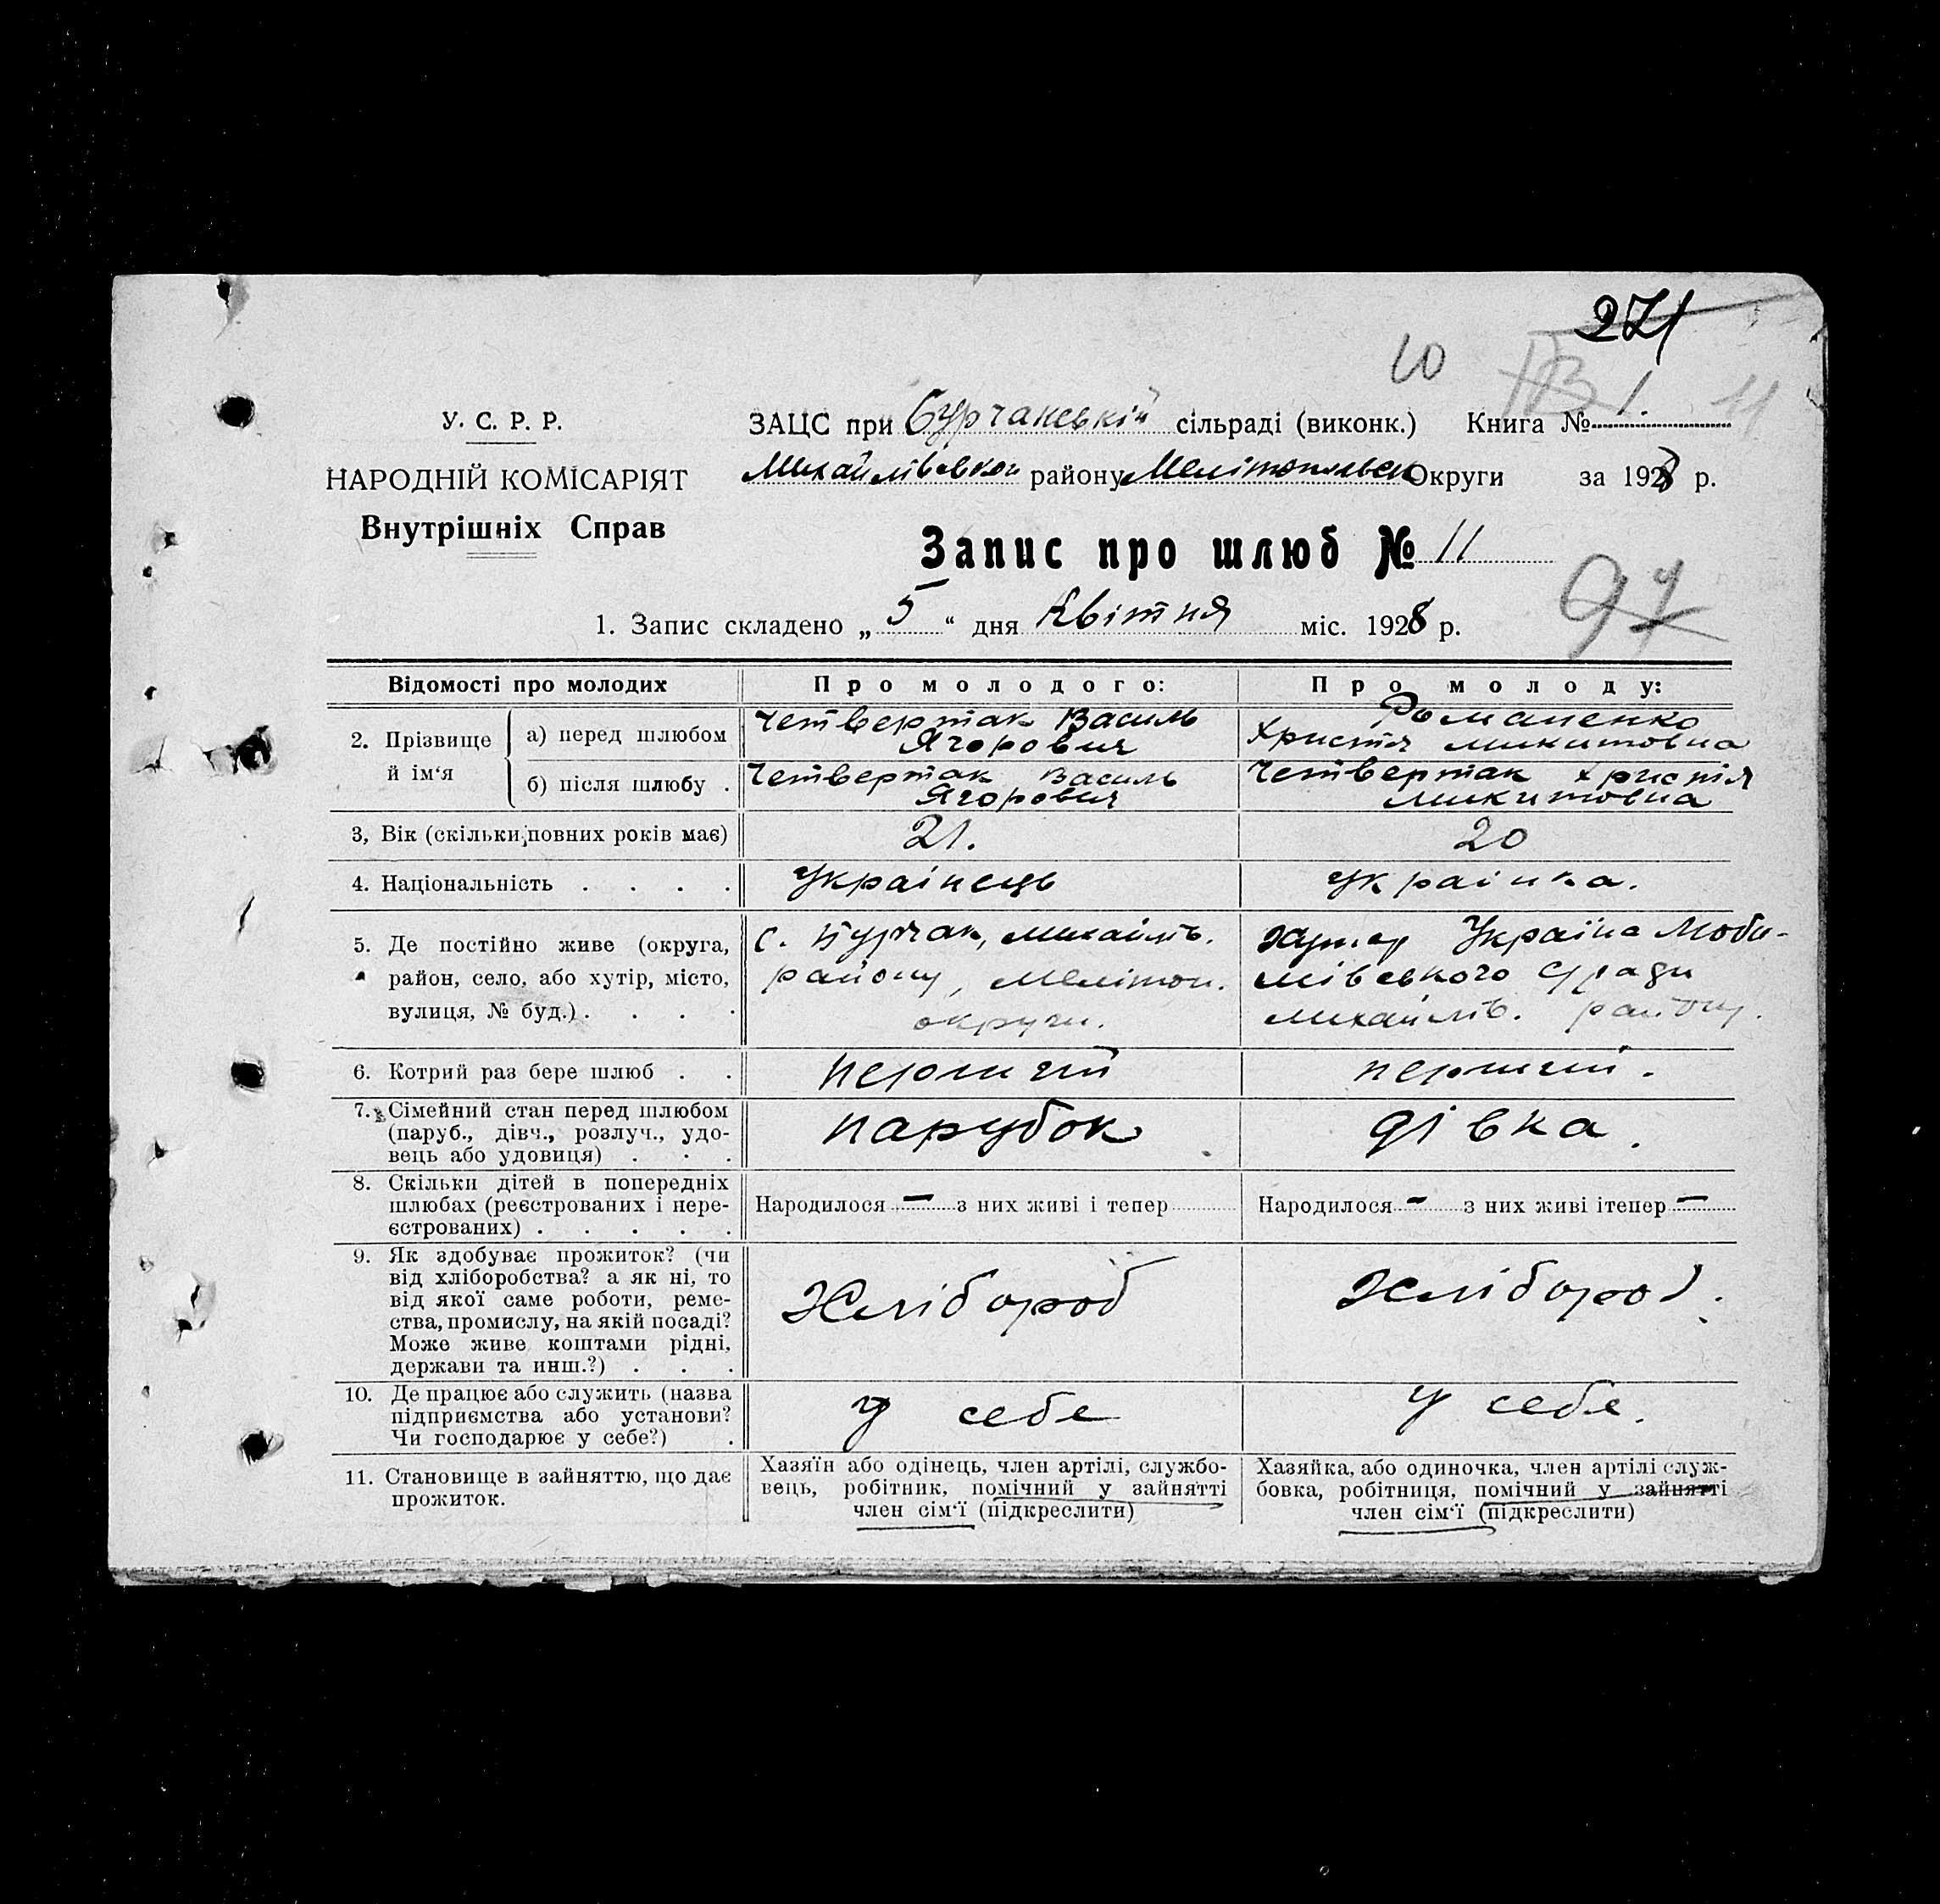 271
10
11
У. С. Р. Р.
НАРОДНІЙ КОМІСАРІЯТ
Внутрішніх Справ
ЗАЦС при Бурчанській сільраді (виконк.) Книга № 1.
Михайлівської району Мелітопольськ Округи за 1928 р.
Запис про шлюб № 11
97
1. Запис складено „ 5 “ дня Квітня міс. 1928 р.
Відомості про молодих Про молодого: Про молоду:
2. Прізвище й ім‘я
а) перед шлюбом
Четвертак Василь
Ягорович
Романенко
Христя Микитовна
б) після шлюбу .
Четвертак Василь
Ягорович
Четвертак Христя
Микитовна
3, Вік (скільки повних років має) 21. 20
4. Національність . . . . Украінець Украінка.
5. Де постійно живе (округа,
район, село, або хутір, місто,
вулиця, № буд.) . . . .
с. Бурчак, Михайлів.
району, Мелітоп.
округи.
хутір Україна Моби-
лівського с/ради
Михайлів. району.
6. Котрий раз бере шлюб . . перший перший.
7. Сімейний стан перед шлюбом
(паруб., дівч., розлуч., удо-
вець або удовиця) . . .
парубок дівка.
8. Скільки дітей в попередніх
шлюбах (реєстрованих і нере-
єстрованих) . . . . .
Народилося — з них живі і тепер
Народилося — з них живі ітепер —
9. Як здобуває прожиток? (чи
від хліборобства? а як ні, то
від якої саме роботи, реме-
ства, промислу, на якій посаді?
Може живе коштами рідні,
держави та инш.?) . . .
Хлібороб Хлібороб.
10. Де працює або служить (назва
підприємства або установи?
Чи господарює у себе?) .
у себе у себе.
11. Становище в зайняттю, що дає
прожиток.
Хазяїн або одінець, член артілі, службо-
вець, робітник, помічний у зайнятті
член сім‘ї (підкреслити)
Хазяйка, або одиночка, член артілі служ-
бовка, робітниця, помічний у зайнятті
член сім‘ї (підкреслити)